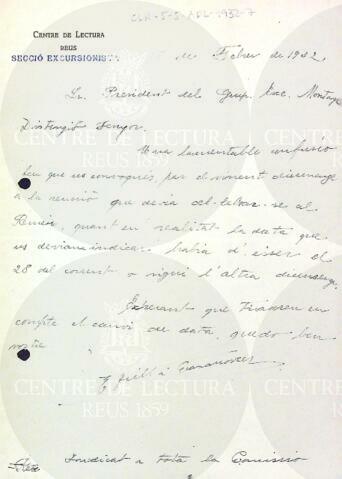 CLR-5-5-ADL-1932-7
CENTRE DE LECTURA
REUS
SECCIÓ EXCURSIONISTA
de Febrer de 1932
Sr. President del Grup Exc. Montanya
Distingit Senyor:
Una lamentable confusió
feu que us convoqués, per el vinent diumenge
a la reunió que devia celebrar-se al
quant en realitat la data que
us deviam indicar havia d'ésser el
28 del corrent o sigui l'altre diumenge.
Esperant que tindreu en
compte el canvi de data, quedo ben
vostre
Indicat a tota la Comissió
CENTRE DE LECTURA
REUS 1859